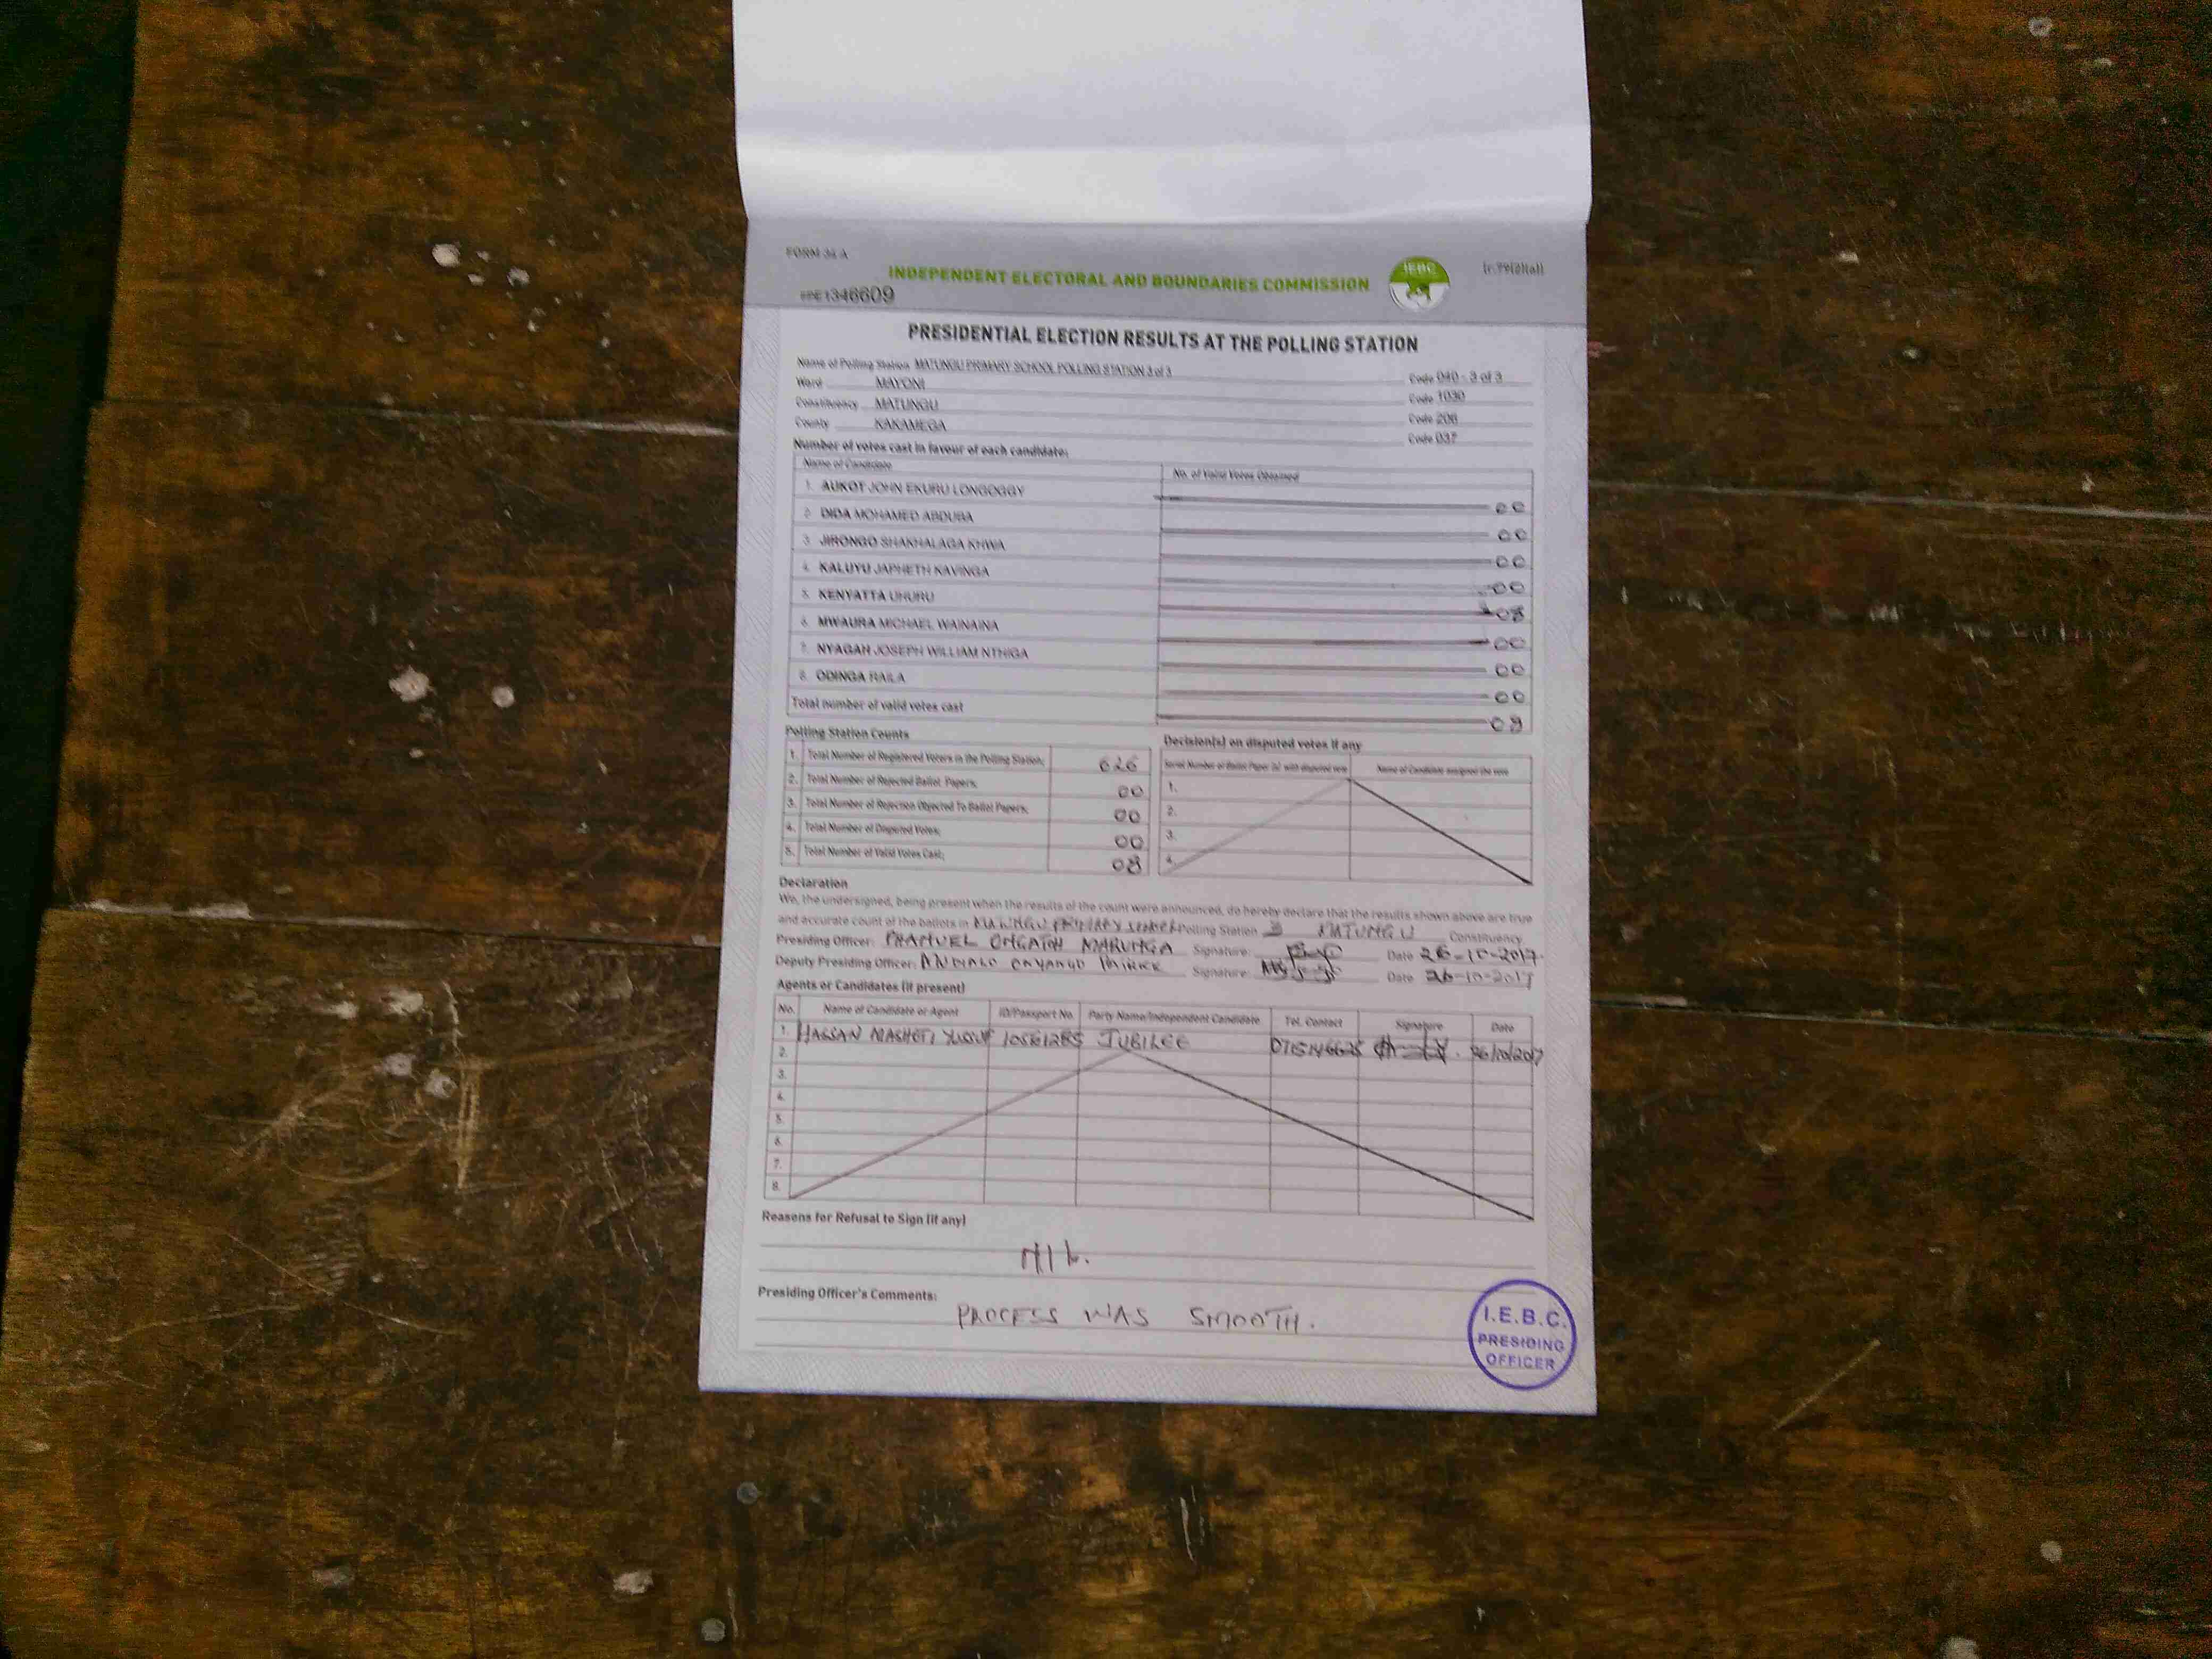 FORM 34 A
INDEPENDENT ELECTORAL AND BOUNDARIES COMMISSION
IEBC
1346609
PRESIDENTIAL ELECTION RESULTS AT THE POLLING STATION
Name of Polling Station MATUNGU PRIMARY SCHOOL POLLING STATION 3 of 3 Code 040 - 3 of 3
Ward MAYONI Code 1030
Constituency MATUNGU Code 206
County KAKAMEGA Code 037
Number of votes cast in favour of each candidate:
Name of Candidate No. of Valid Votes Obtained
1. AUKOT JOHN EKURU LONGOGGY 00
2. DIDA MOHAMED ABDUBA 00
3. JIRONGO SHAKHALAGA KHWA 00
4. KALUYU JAPHETH KAVINGA 00
5. KENYATTA UHURU 08
6. MWAURA MICHAEL WAINAINA 00
7. NYAGAH JOSEPH WILLIAM NTHIGA 00
8. ODINGA RAILA 00
Total number of valid votes cast 08
Polling Station Counts
1. Total Number of Registered Voters in the Polling Station; 626
2. Total Number of Rejected Ballot Papers; 00
3. Total Number of Rejection Objected To Ballot Papers; 00
4. Total Number of Disputed Votes; 00
5. Total Number of Valid Votes Cast; 08
Decision(s) on disputed votes if any
Serial Number of Ballot Paper (s) with disputed vote Name of Candidate assigned the vote
1.
2.
3.
4.
Declaration
We, the undersigned, being present when the results of the count were announced, do hereby declare that the results shown above are true
and accurate count of the ballots in PRIMARY Polling Station 3 MATUNGU Constituency
Presiding Officer: Signature: Date 26-10-2017
Deputy Presiding Officer: ONYANGO Signature: Date 26-10-2017
Agents or Candidates (if present)
No. Name of Candidate or Agent ID/Passport No. Party Name/Independent Candidate Tel. Contact Signature Date
1. HASSAN YUSUF JUBILEE 26/10/2017
2.
3.
4.
5.
6.
7.
8.
Reasons for Refusal to Sign (if any)
NIL.
Presiding Officer's Comments:
PROCESS WAS SMOOTH.
I.E.B.C.
PRESIDING
OFFICER